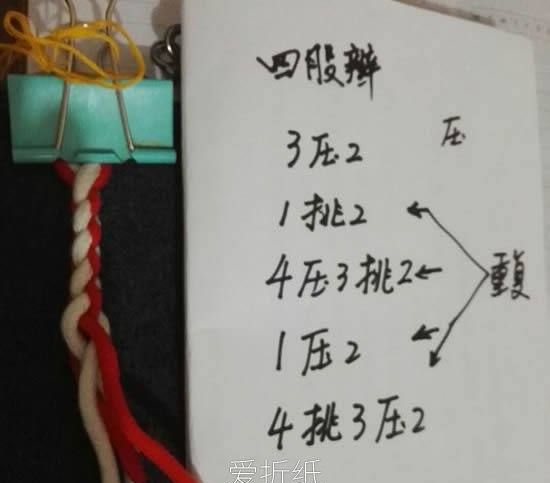 四股辫
3压2
压
1挑2
4压3挑2
重复
1压2
4挑3压2
爱折纸